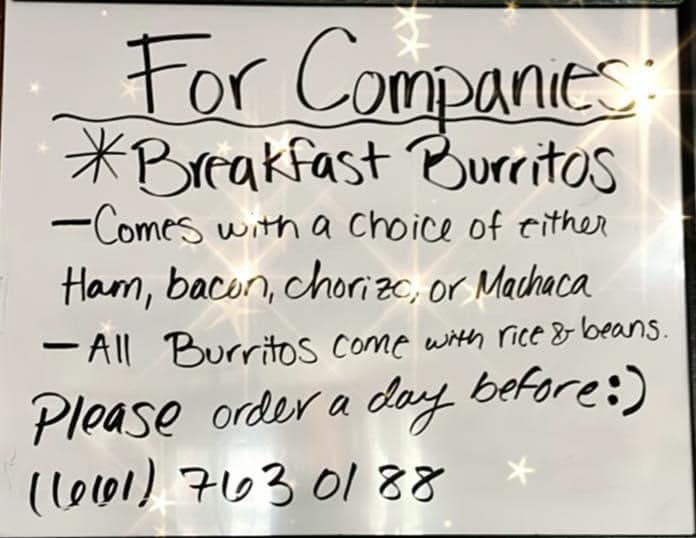 For Companies:
*Breakfast Burritos
-Comes with a choice of either
Ham, bacon, chorizo, or Machaca
- All Burritos come with rice & beans.
Please order a day before:)
(661) 763 0188